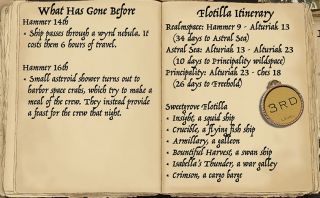 What Has Gone Before
Hammer 14th
• Ship passes through a wyrd nebula. It
costs them 6 hours of travel.
Hammer 16th
• Small asteroid shower turns out to
harbor space crabs, which try to make a
meal of the crew. They instead provide
a feast for the crew that night.
Flotilla Itinerary
Realmspace: Hammer 9 - Alturiak 13
(34 days to Astral Sea)
Astral Sea: Alturiak 13 - Alturiak 23
(10 days to Principality wildspace)
Principality: Alturiak 23 - Ches 18
(26 days to Freehold)
Sweetgrove Flotilla
• Insight, a squid ship
• Crucible, a flying fish ship
• Armillary, a galleon
• Bountiful Harvest, a swan ship
• Isabella's Thunder, a war galley
• Crimson, a cargo barge
3RD